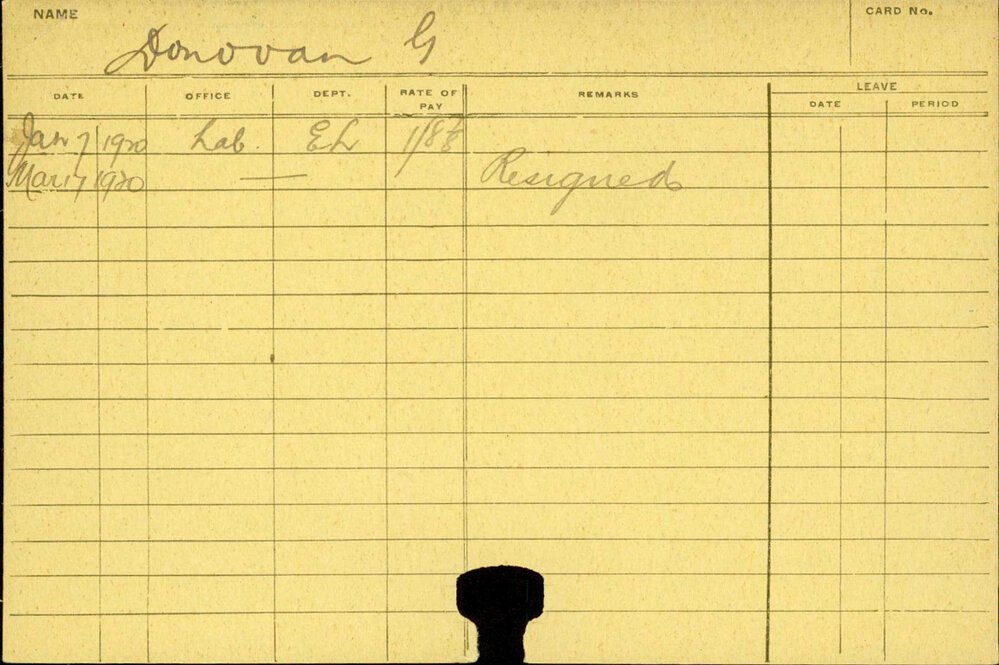 NAME CARD No.
Donovan G
LEAVE
DATE OFFICE DEPT. RATE OF PAY REMARKS DATE PERIOD
Jan 7 1920 Lab. EL
Mar 17 1920 — Resigned